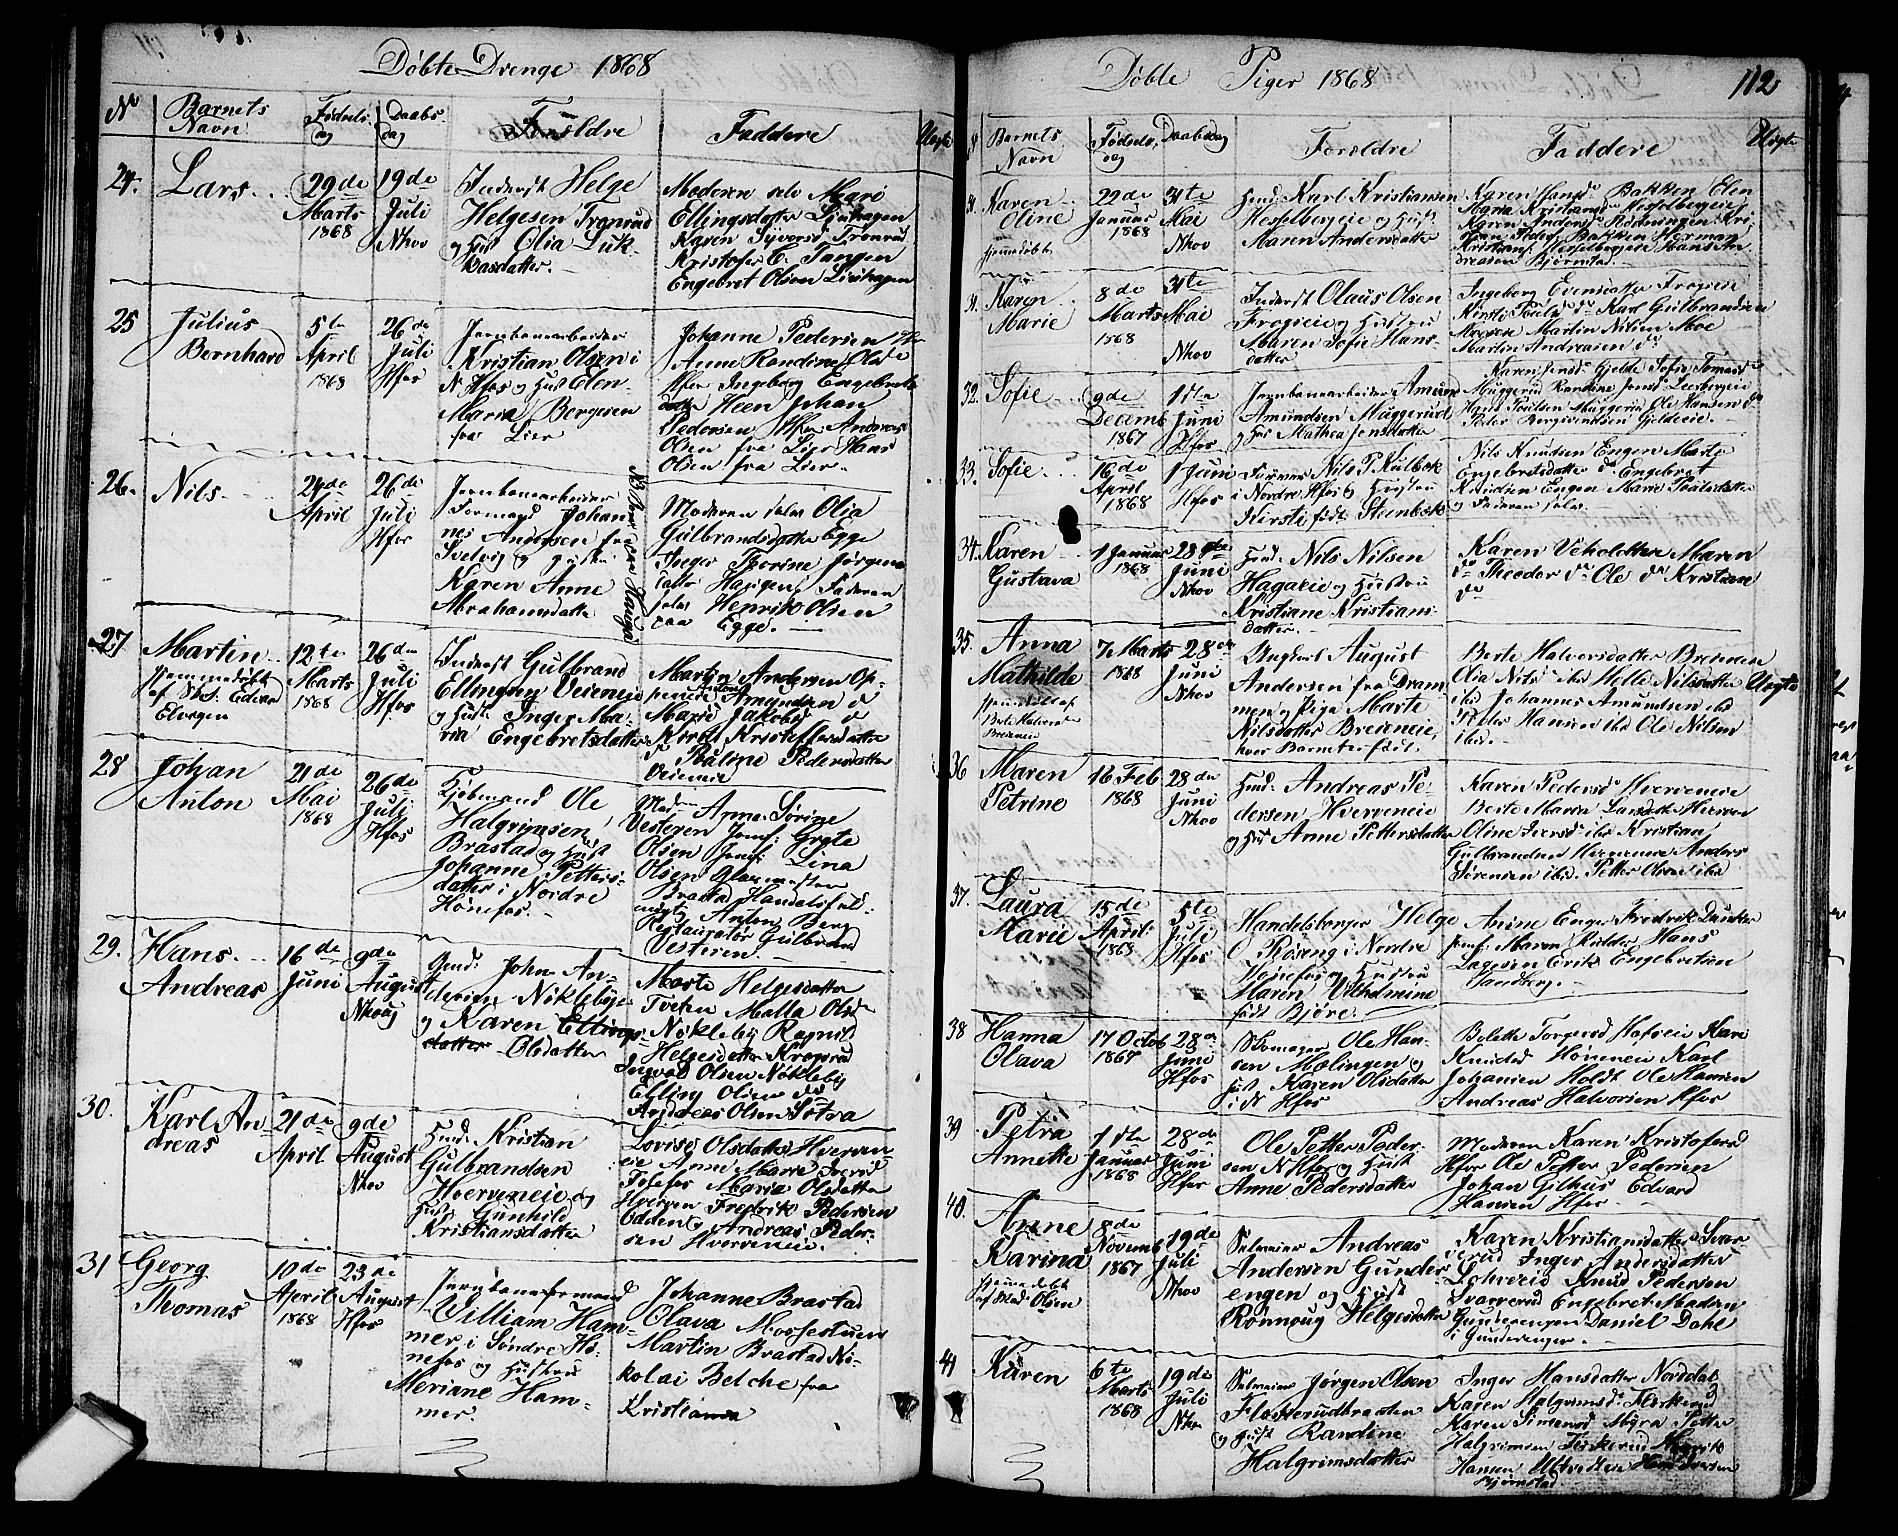 Døbte Drenge 1868
No
Barnets
Navn
Fødsels
dag
Daabs
dag
Forældre
Faddere
Uægte
24.
Lars
29de
Marts
1868
19de
Juli
Nhov
Inderst Helge
Helgesen Tronrud
og Hust Olia Luk-
kasdatter.
Moderen selv Mari
Ellingsdatter
Karen Syversd Tronrud
Kristofer E. Tangen
Engebret Olsen
25
Julius
Bernhard
5te
April
1868
26de
Juli
Hfos
Jernbanearbeider
Kristian Olsen i
N. Hfos og Hust Elen
Maria Borgesen
fra Lier
Johanne Pedersen
Anne Randine Olsd
Hfos Ingeborg Engebrets
datter Heen Johan
Pedersen Hfos Andreas
Olsen fra Lier Hans
Olsen fra Lier
26.
Nils
24de
April
26de
Juli
Hfos
Jernbanearbeider
Formand Johan
nes Andersen fra
Svelvig og Hustru
Karen Anne
Abrahamsdatter
Moderen selv Olia
Gulbrandsdatter Egge
Inger Thorine Jørgens
datter Haugen, Faderen
selv Henrik Olsen
paa Egge.
27
Martin
Hjemmedøbt
af Skol. Edvar
Elvegen
12te
Marts
1868
26de
Juli
Hfos
Inderst Gulbrand
Ellingsen Veieneie
og Hust. Inger Ma-
ria Engebretsdatter
Martin Andersen Op-
Amundsen d
Marie Jakobsd d
Kirsti Kristoffersdatter
Pauline Pedersdatter
Veieneie
28
Johan
Anton
21de
Mai
1868
26de
Juli
Hfos
Kjøbmand Ole
Halgrimsen
Brastad og Hust
Johanne Petters-
datter i Nordre
Hønefos.
Madm Anna Sørine
Vesteren Jomf. Grete
Olsen Jomf. Lina
Olsen Glasmester
Brastad Handelsfuld-
mægt. Anton Berg
Restauratør Gulbrand
Vesteren.
29.
Hans
Andreas
16de
Juni
9de
August
Nhov
Gmd: John An-
dersen Nøkleby
og Karen Ellings
datter Olsdatter
Marte Helgesdatter
Tveten Malla Olsd
Nøkleby Ragnild
Helgesdatter Krogsrud
Ingvald Olsen Nøkleby
Elling Olsen do
Andreas Olsen Sotra
30.
Karl An
dreas
21de
April
9de
August
Nhov
Hmd. Kristian
Gulbrandsen
Hverveneie og
Hust Gunhild
Kristiansdatter
Lovise Olsdatter Hverven-
eie Anne Marie Iversd
Maria Olsdatter
Hverven Fredrik Pedersen
Odden Andreas Peder-
sen Hverveneie.
31
Georg
Thomas
10de
April
1868
23de
August
Hfos
Jernbaneformand
William Ham-
mer i Søndre Hø-
nefos og Hustru
Meriane Ham-
mer.
Johanne Brastad
Olava Mossestuen
Martin Brastad Ni-
kolai Belche fra
Kristiania
Døbte Piger 1868
112
Barnets
Navn
Fødsels
dag
Daabsdag
Forældre
Faddere
Uægte
Karen
Oline
Hjemmedøbt
22de
Januar
1868
31te
Mai
Nhov
Hmd. Karl Kristiansen
Hesselbergeie og Hust
Maren Andersdatter
Karen Hansd Bakken Elen
Maria Kristiansd Hesselbergeie
Karen Andersd Rødningen Kri-
stian Peders Bakken Herman
Kristians Hesselbergeie Hans An
dreasen Bjørnstad.
Maren
Marie
8de
Marts
1868
31te
Mai
Nhov
Inderst Olaus Olsen
Frogeie og Hustru
Maren Sofie Hans-
datter
Ingeborg Evensdatter Frogeie
Kirsti Poulsd do Karl Gulbrandsen
Martin Nilsen Moe
Martin Andreasen do
32.
Sofie
9de
Decemb
1867
1ste
Juni
Hfos
Jernbanearbeider Amund
Amundsen Muggerud
og Hus Mathea Jensdatter
Karen Jensd Gjelde Sofie Tomasd
Muggerud Randine Jensd Leerbergeie
Hans Poulsen Muggerud Ole Hansen do
Peder Gjeldeeie.
33.
Sofie
16de
April
1868
1 Juni
Hfos
Nils P. Kulbek
i Nordre Hfos og Hustru
Kirsti født Steenbek
Nils Knudsen Engen Marte
Engebretsdatter do Engebret
Knudsen Engen Marie Poulsdatter
og Faderen selv.
34.
Karen
Gustava
1 Januar
1868
28de
Juni
Nhov
Hmd. Nils Nilsen
Hagaeie og Hustru
Kristiane Kristians-
datter.
Karen Maren
do Theodor do Ole do Kristiane
do
35.
Anna
Mathilde
Hjemmedøbt af
Berte Halvorsd
Breieneie
7 Marts
1868
28de
Juni
Nhov
Ungkarl August
Andersen fra Dram-
men og Pige Marte
Nilsdatter Breieneie,
hvor Barnet er født.
Berte Halvorsdatter Breieneie
Olia Nilsd ibd Helle Nilsdatter
ibd Johannes Amundsen ibd
Peder Hansen ibd Ole Nilsen
ibd.
Uægte
36
Maren
Petrine
16 Feb
1868
28de
Juni
Nhov
Hmd. Andreas Pe-
dersen Hverveneie
og Hus Anne Pettersdatter
Karen Pedersd Hverveneie
Berte Maria Larsdatter Hverven
Oline Iversd ibd Kristian
Gulbrandsen Hverveneie Anders
Sørensen ibd. Petter Olsen ibd
37.
Laura
Marie
15de
April
1868
5te
Juli
Hfos
Handelsborger Helge
O Røseng i Nordre
Hønefos og Hustru
Maren Vilhelmine
født Bjøre.
Anine Enger Fredrik Dunker
Jomf. Maren Ridder Hans
Lagesen Erik Engebretsen
Sandberg.
38
Hanna
Olava
17 Octob
1867
28de
Juni
Hfos
Skomager Ole Han-
sen Molingen og
Hust Karen Olsdatter
i N Hfos
Bolette Torgersd Hofseie Kari
Knudsd Hønenen Karl
Johansen Holdt Ole Hansen
Andreas Halvorsen Hfos
39
Petra
Annette
1ste
Januar
1868
28de
Juni
Hfos
Ole Petter Peder-
sen N Hfos og Hust
Anne Pedersdatter
Moderen Karen Kristofersd
Hfos Ole Petter Pedersen
Johan Gilhus Edvard
Hansen Hfos
40.
Anne
Karina
Hjemmedøbt
af Mad. Olsen
8de
Novemb
1867
19de
Juli
Nhov
Selveier Andreas
Andersen Gunder
engen og Hust
Rønnoug Helgesdatter
Karen Kristiansdatter Svar
verud Inger Andersdatter
Knud Pedersen
Svarverud Engebret Madsen
Gunderengen Daniel Dahl
i Gunderengen.
41
Karen
6te
Marts
1868
19de
Juli
Nhov
Selveier Jørgen Olsen
Fleskerudbraaten
og Hust Randine
Halgrimsdatter
Inger Hansdatter Norddal
Karen Halgrimsd Fleskerud
Karen Simensd Myra Petter
Halgrimsen Henrik
Hansen
Bjørnstad.